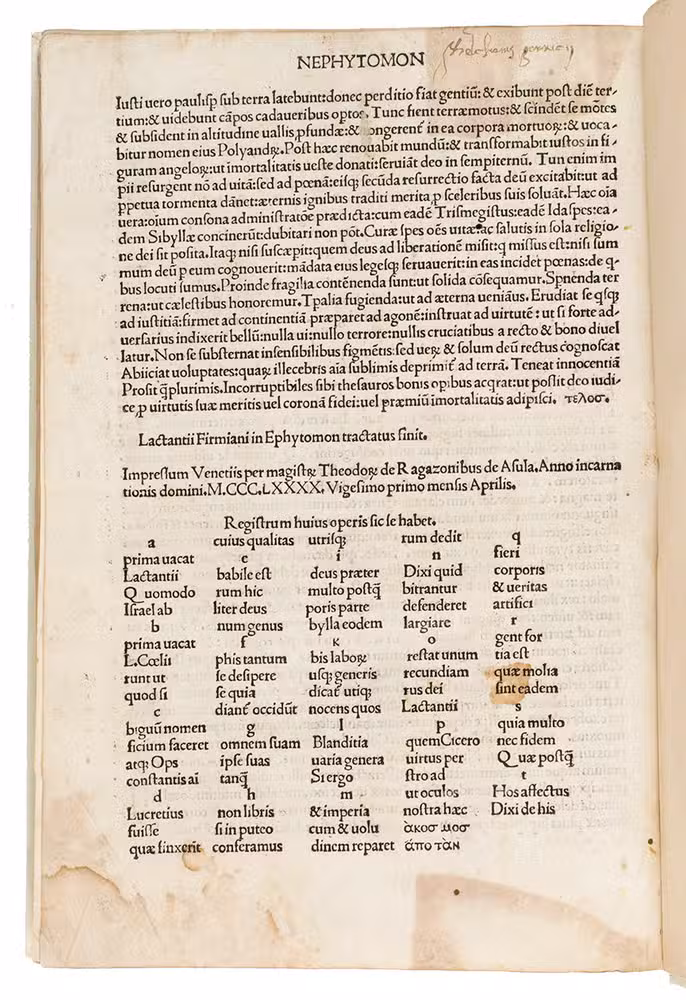 NEPHYTOMON
Iusti uero paulisp sub terra latebunt:donec perditio fiat gentiū:& exibunt post diē ter-
tium:& uidebunt cāpos cadaueribus optos. Tunc fient terræmotus:& scindēt se mōtes
& subsident in altitudine uallis,pfundæ:& congerent̃ in ea corpora mortuoꝝ:& uoca-
bitur nomen eius Polyandꝝ.Post hæc renouabit mundū:& transformabit iustos in fi-
guram angeloꝝ:ut imortalitatis ueste donati:seruiāt deo in sempiternū. Tun enim im
pii resurgent nō ad uitā:sed ad pœnā:eisꝙ secūda resurrectio facta deū excitabit:ut ad
ppetua tormenta dānet:æternis ignibus traditi merita,p sceleribus suis soluāt.Hæc oīa
uera:oīum consona administratōe prædicta:cum eadē Trismegistus:eadē Idaspes:ea-
dem Sibyllæ concinerūt:dubitari non pōt.Curæ spes oēs uitæ:ac salutis in sola religio-
ne dei sit posita.Itaꝗ nisi suscæpit:quem deus ad liberationē misit:q missus est:nisi sum
mum deū p eum cognouerit:mādata eius legesꝗ seruauerit:in eas incidet pœnas:de q-
bus locuti sumus.Proinde fragilia contēnenda sunt:ut solida cōsequamur.Spnenda ter
rena:ut cælestibus honoremur.Tpalia fugienda:ut ad æterna ueniāus. Erudiat se qsꝗ
ad iustitiā:firmet ad continentiā præparet ad agonē:instruat ad uirtutē : ut si forte ad-
uersarius indixerit bellū:nulla ui:nullo terrore:nullis cruciatibus a recto & bono diuel
latur.Non se substernat insensibilibus figmētis:sed ueꝝ & solum deū rectus cognoscat
Abiiciat uoluptates:quaꝝ illecebris aīa sublimis deprimit̃ ad terrā. Teneat innocentiā
Prosit ꝗ̄plurimis.Incorruptibiles sibi thesauros bonis opibus acqrat:ut possit deo iudi-
ce,p uirtutis suæ meritis uel coronā fidei:uel præmiū imortalitatis adipisci. τελοσ.
Lactantii Firmiani in Ephytomon tractatus finit.
Impressum Venetiis per magistꝝ Theodoꝝ de Ragazonibus de Asula.Anno incarna
tionis domini.M.CCC.LXXXX.Vigesimo primo mensis Aprilis.
Registrum huius operis sic se habet.
a
prima uacat
Lactantii
Quomodo
Israel ab
b
prima uacat
L.Cœlii
runt ut
quod si
c
biguū nomen
ficium faceret
atꝗ Ops
constantis ai
d
Lucretius
fuisse
quæ finxerit
cuius qualitas
e
babile est
rum hic
liter deus
num genus
f
phis tantum
se desipere
se quia
diant̃ occidūt
g
omnem suam
ipse suas
tanꝗ̄
h
non libris
si in puteo
conferamus
utrisꝗ
i
deus præter
multo postꝗ̄
poris parte
bylla eodem
k
bis laboꝝ
usꝗ generis
dicat̃ utiꝗ
nocens quos
l
Blanditia
uaria genera
Si ergo
m
& imperia
cum & uolu
dinem reparet
rum dedit
n
Dixi quid
bitrantur
defenderet
largiare
o
restat unum
recundiam
rus dei
Lactantii
p
quem Cicero
uirtus per
stro ad
ut oculos
nostra hæc
ἀκοσ μοσ
ἅπο τὰν
q
fieri
corporis
& ueritas
artifici
r
gent for
tia est
quæ molia
sint eadem
s
quia multo
nec fidem
Quæ postꝗ̄
t
Hos affectus
Dixi de his